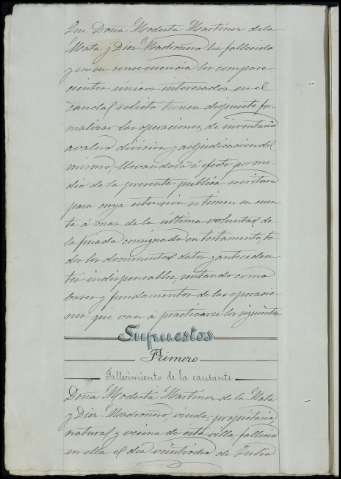 Que Doña Modesta Martinez de la
Mata y Diez Madroñero ha fallecido
y en su consecuencia los compare
cientes unicos interesados en el
caudal relicto tienen dispuesto for
malizar las operaciones, de inventario
avaluo division y adjudicacion del
mismo, llevandola á efecto por me
dio de la presente publica escritura
para cuya estension se tienen en cuen
ta á mas de la ultima voluntad de
la finada consignada en testamento, to
dos los documentos datos y anteceden
tes indispensables, sentando como
bases y fundamentos de las operacio
nes que van á practicarse los siguientes
Supuestos
Primero
Fallecimiento de la causante
Doña Modesta Martinez de la Mata
y Diez Madroñero, viuda, propietaria,
natural y vecina de esta villa, falleció
en ella el dia veintiocho de